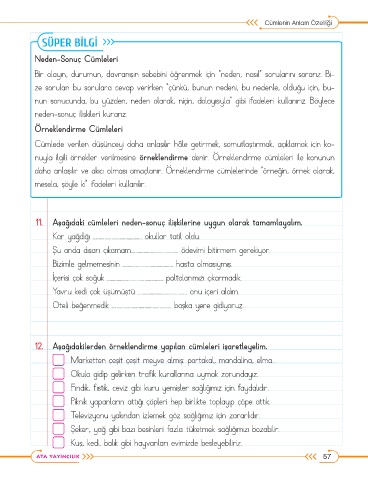 Cümlenin Anlam Özelliği
SÜPER BİLGİ
Neden-Sonuç Cümleleri
Bir olayın, durumun, davranışın sebebini öğrenmek için "neden, nasıl" sorularını sorarız. Bi-
ze sorulan bu sorulara cevap verirken "çünkü, bunun nedeni, bu nedenle, olduğu için, bu-
nun sonucunda, bu yüzden, neden olarak, niçin, dolayısıyla" gibi ifadeleri kullanırız. Böylece
neden-sonuç ilişkileri kurarız.
Örneklendirme Cümleleri
Cümlede verilen düşünceyi daha anlaşılır hâle getirmek, somutlaştırmak, açıklamak için ko-
nuyla ilgili örnekler verilmesine örneklendirme denir. Örneklendirme cümleleri ile konunun
daha anlaşılır ve akıcı olması amaçlanır. Örneklendirme cümlelerinde "örneğin, örnek olarak,
mesela, şöyle ki" ifadeleri kullanılır.
11. Aşağıdaki cümleleri neden-sonuç ilişkilerine uygun olarak tamamlayalım.
Kar yağdığı ........................ okullar tatil oldu.
Şu anda dışarı çıkamam........................ ödevimi bitirmem gerekiyor.
Bizimle gelmemesinin ........................ hasta olmasıymış.
İçerisi çok soğuk ........................ paltolarımızı çıkarmadık.
Yavru kedi çok üşümüştü ........................ onu içeri aldım.
Oteli beğenmedik ........................ başka yere gidiyoruz.
12. Aşağıdakilerden örneklendirme yapılan cümleleri işaretleyelim.
Marketten çeşit çeşit meyve almış: portakal, mandalina, elma...
Okula gidip gelirken trafik kurallarına uymak zorundayız.
Fındık, fıstık, ceviz gibi kuru yemişler sağlığımız için faydalıdır.
Piknik yapanların attığı çöpleri hep birlikte toplayıp çöpe attık.
Televizyonu yakından izlemek göz sağlığımız için zararlıdır.
Şeker, yağ gibi bazı besinleri fazla tüketmek sağlığımızı bozabilir.
Kuş, kedi, balık gibi hayvanları evimizde besleyebiliriz.
ATA YAYINCILIK
57